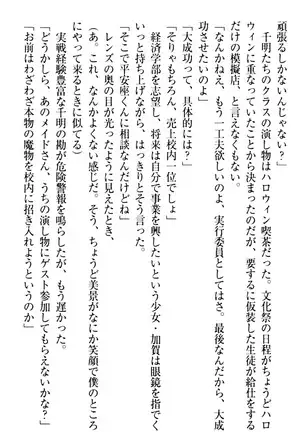 頑張るしかないんじゃない?」
　千明たちのクラスの演し物はハロウィン喫茶だった。文化祭の日程がちょうどハロ
ウィンに重なっていたことから決まったのだが、要するに仮装した生徒が給仕をする
だけの模擬店、と言えなくもない。
「なんかねえ、もう一工夫欲しいのよ、実行委員としてはさ。最後なんだから、大成
功させたいのよ」
「大成功って、具体的には?」
「そりゃもちろん、売上校内一位でしょ」
　経済学部を志望し、将来は自分で事業を興したいという少女・加賀は眼鏡を指でく
いっと持ち上げながら、はっきりとそう言った。
「そこで平安座くんに相談なんだけどね」
　レンズの奥の目が光ったように見えたとき、
(あ。これ、なんかよくない感じだ。そう、ちょうど美景がなにか笑顔で僕のところ
にやって来るときに似てる)
　実戦経験豊富な千明の勘が危険警報を鳴らしたが、もう遅かった。
「どうかしら、あのメイドさん、うちの演し物にゲスト参加してもらえないかな?」
「お前はわざわざ本物の魔物を校内に招き入れようというのか」